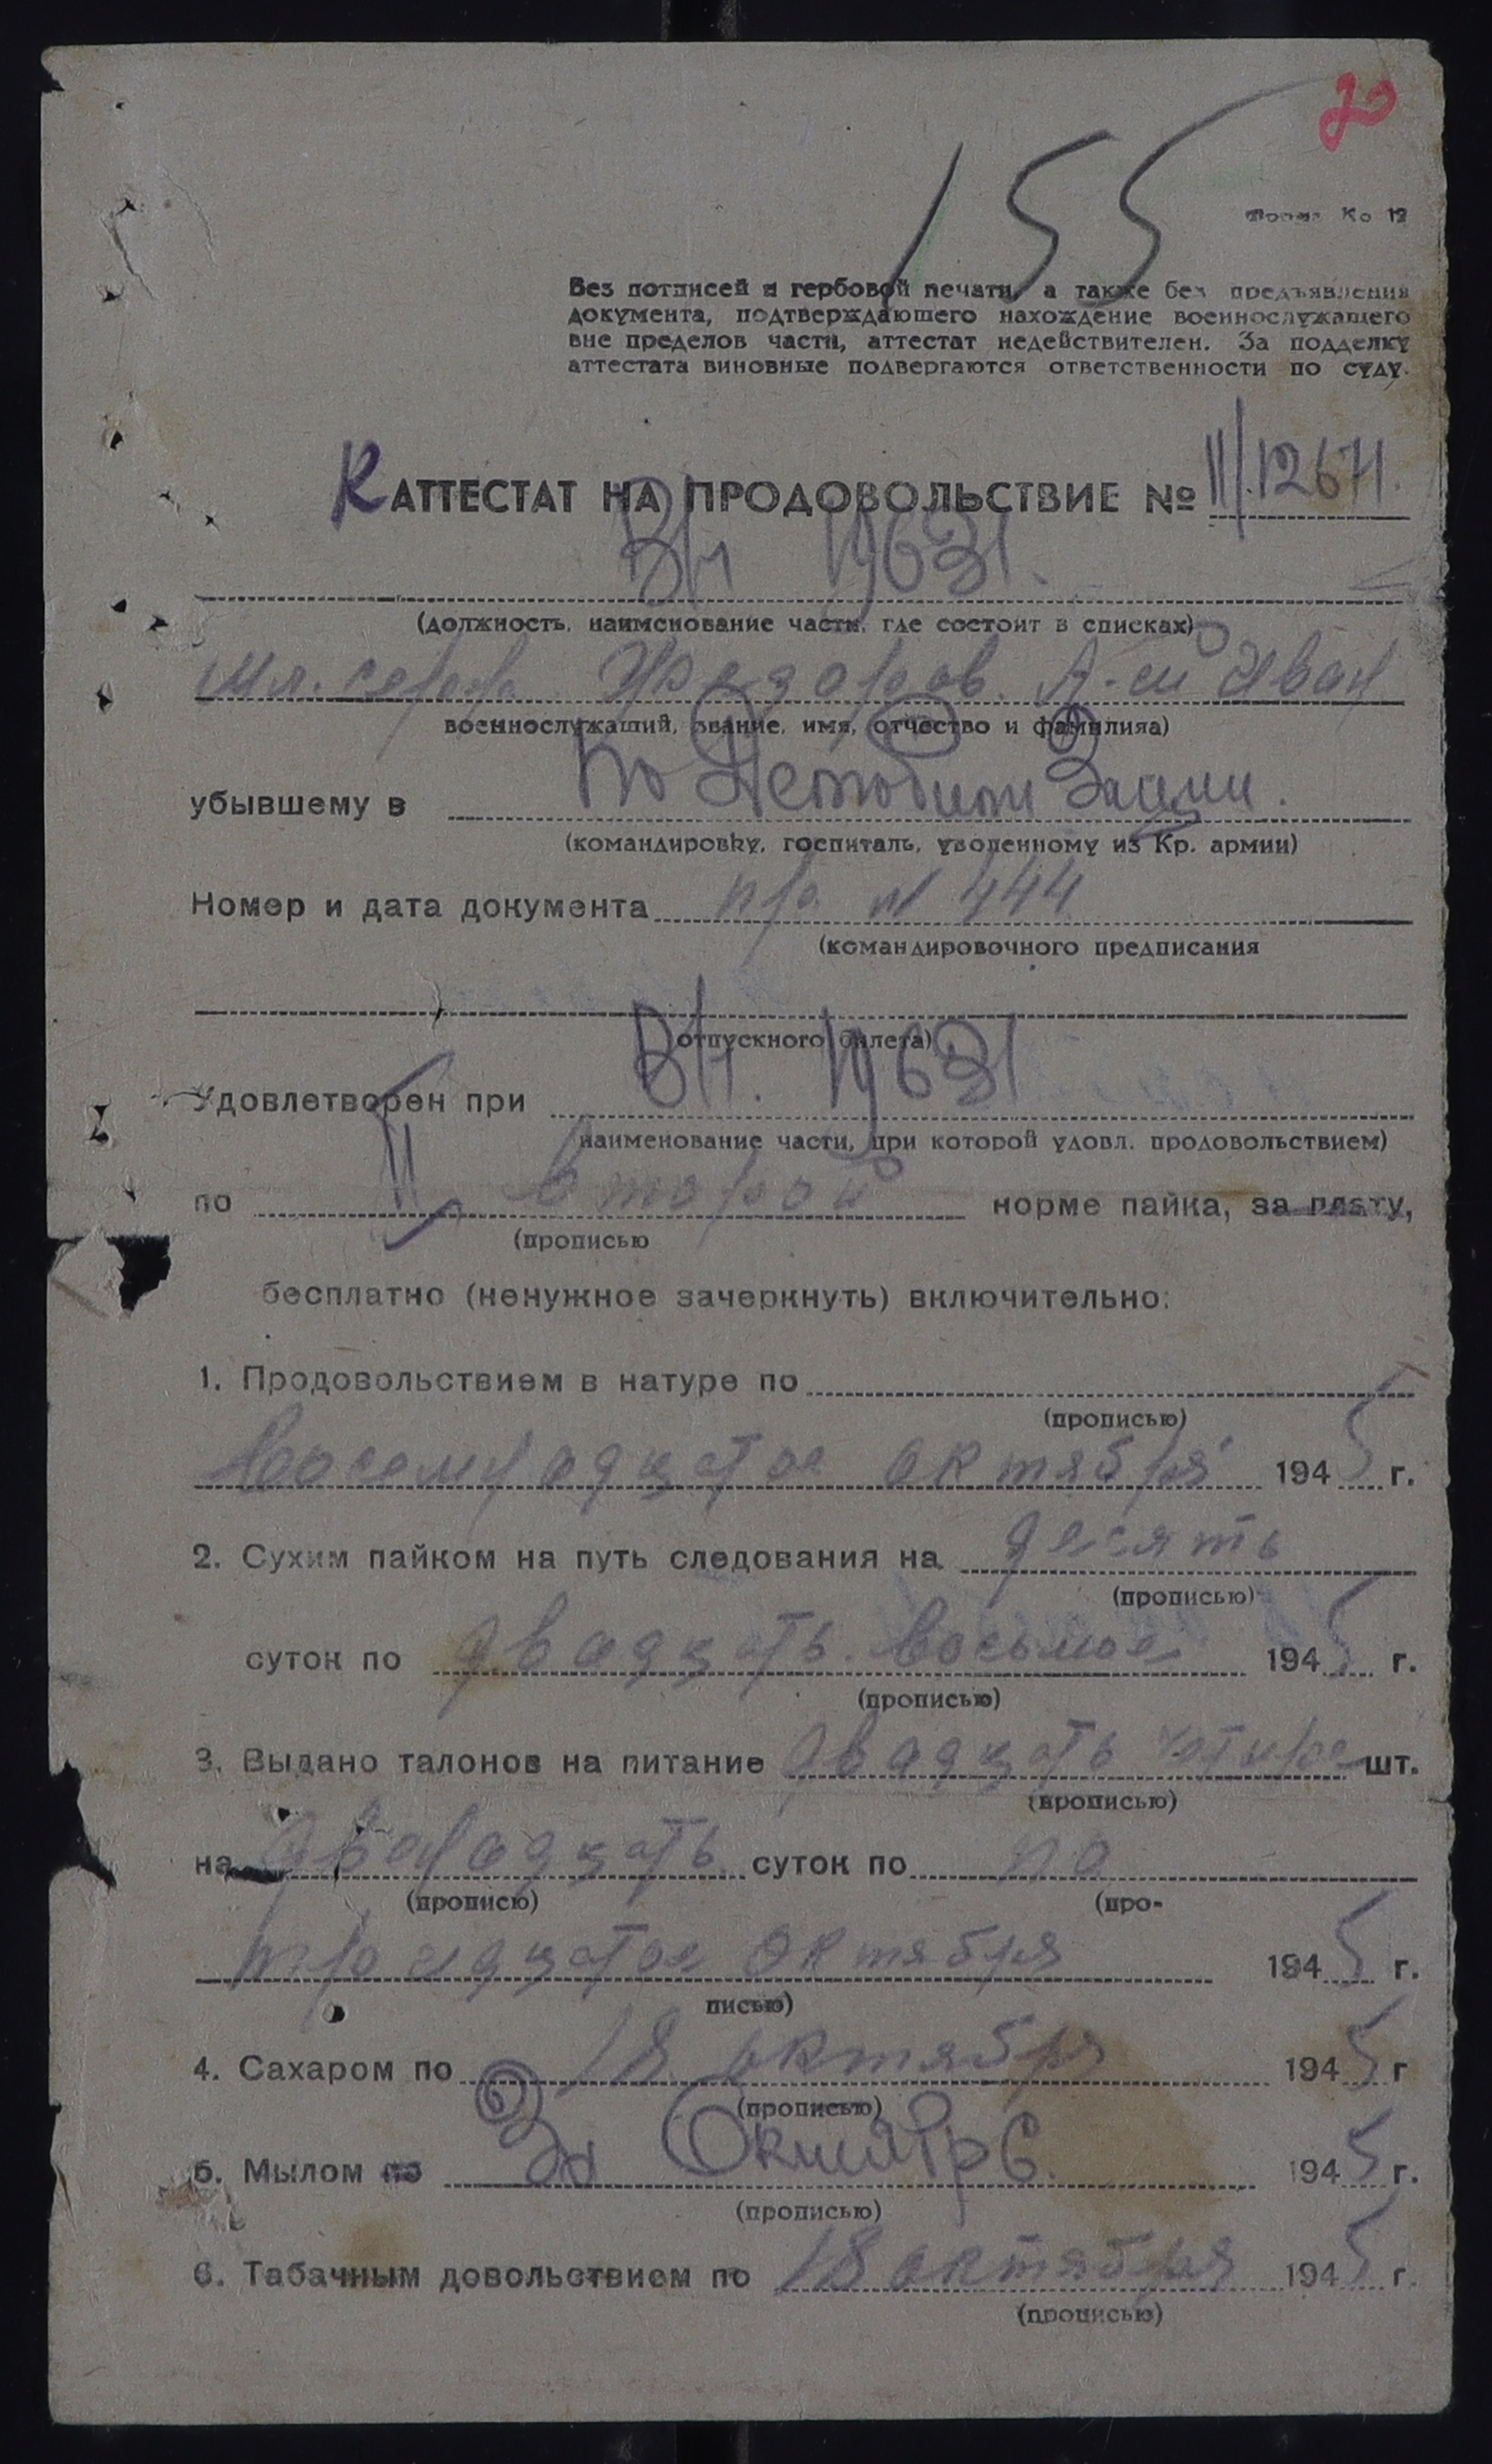 20
155
Форма № 12
Без потписей и гербовой печати, а также без предъявления
документа, подтверждающего нахождение военнослужащего
вне пределов части, аттестат недействителен. За подделку
аттестата виновные подвергаются ответственности по суду.
К АТТЕСТАТ НА ПРОДОВОЛЬСТВИЕ № II/12671.
В/ч 19631.
(должность, наименование части, где состоит в списках)
Мл. серж. Федоров. А-ей Иван
военнослужащий, звание, имя, отчество и фамилияа)
убывшему в По Демобилизации.
(командировку, госпиталь, уволенному из Кр. армии)
Номер и дата документа пр. № 444
(командировочного предписания
отпускного билета)
Удовлетворен при В/ч. 19631
наименование части, при которой удовл. продовольствием)
по II второй норме пайка, за плату,
(прописью
бесплатно (ненужное зачеркнуть) включительно:
1. Продовольствием в натуре по
(прописью)
Восемнадцатое октября 1945 г.
2. Сухим пайком на путь следования на десять
(прописью)
суток по двадцать восьмое 1945 г.
(прописью)
3. Выдано талонов на питание двадцать четыре шт.
(прописью)
на двенадцать суток по по
(прописю) (про-
тридцатое октября 1945 г.
писью)
4. Сахаром по 18 октября 1945 г
(прописью)
5. Мылом по За Октябрь 1945 г.
(прописью)
6. Табачным довольствием по 18 октября 1945 г.
(прописью)